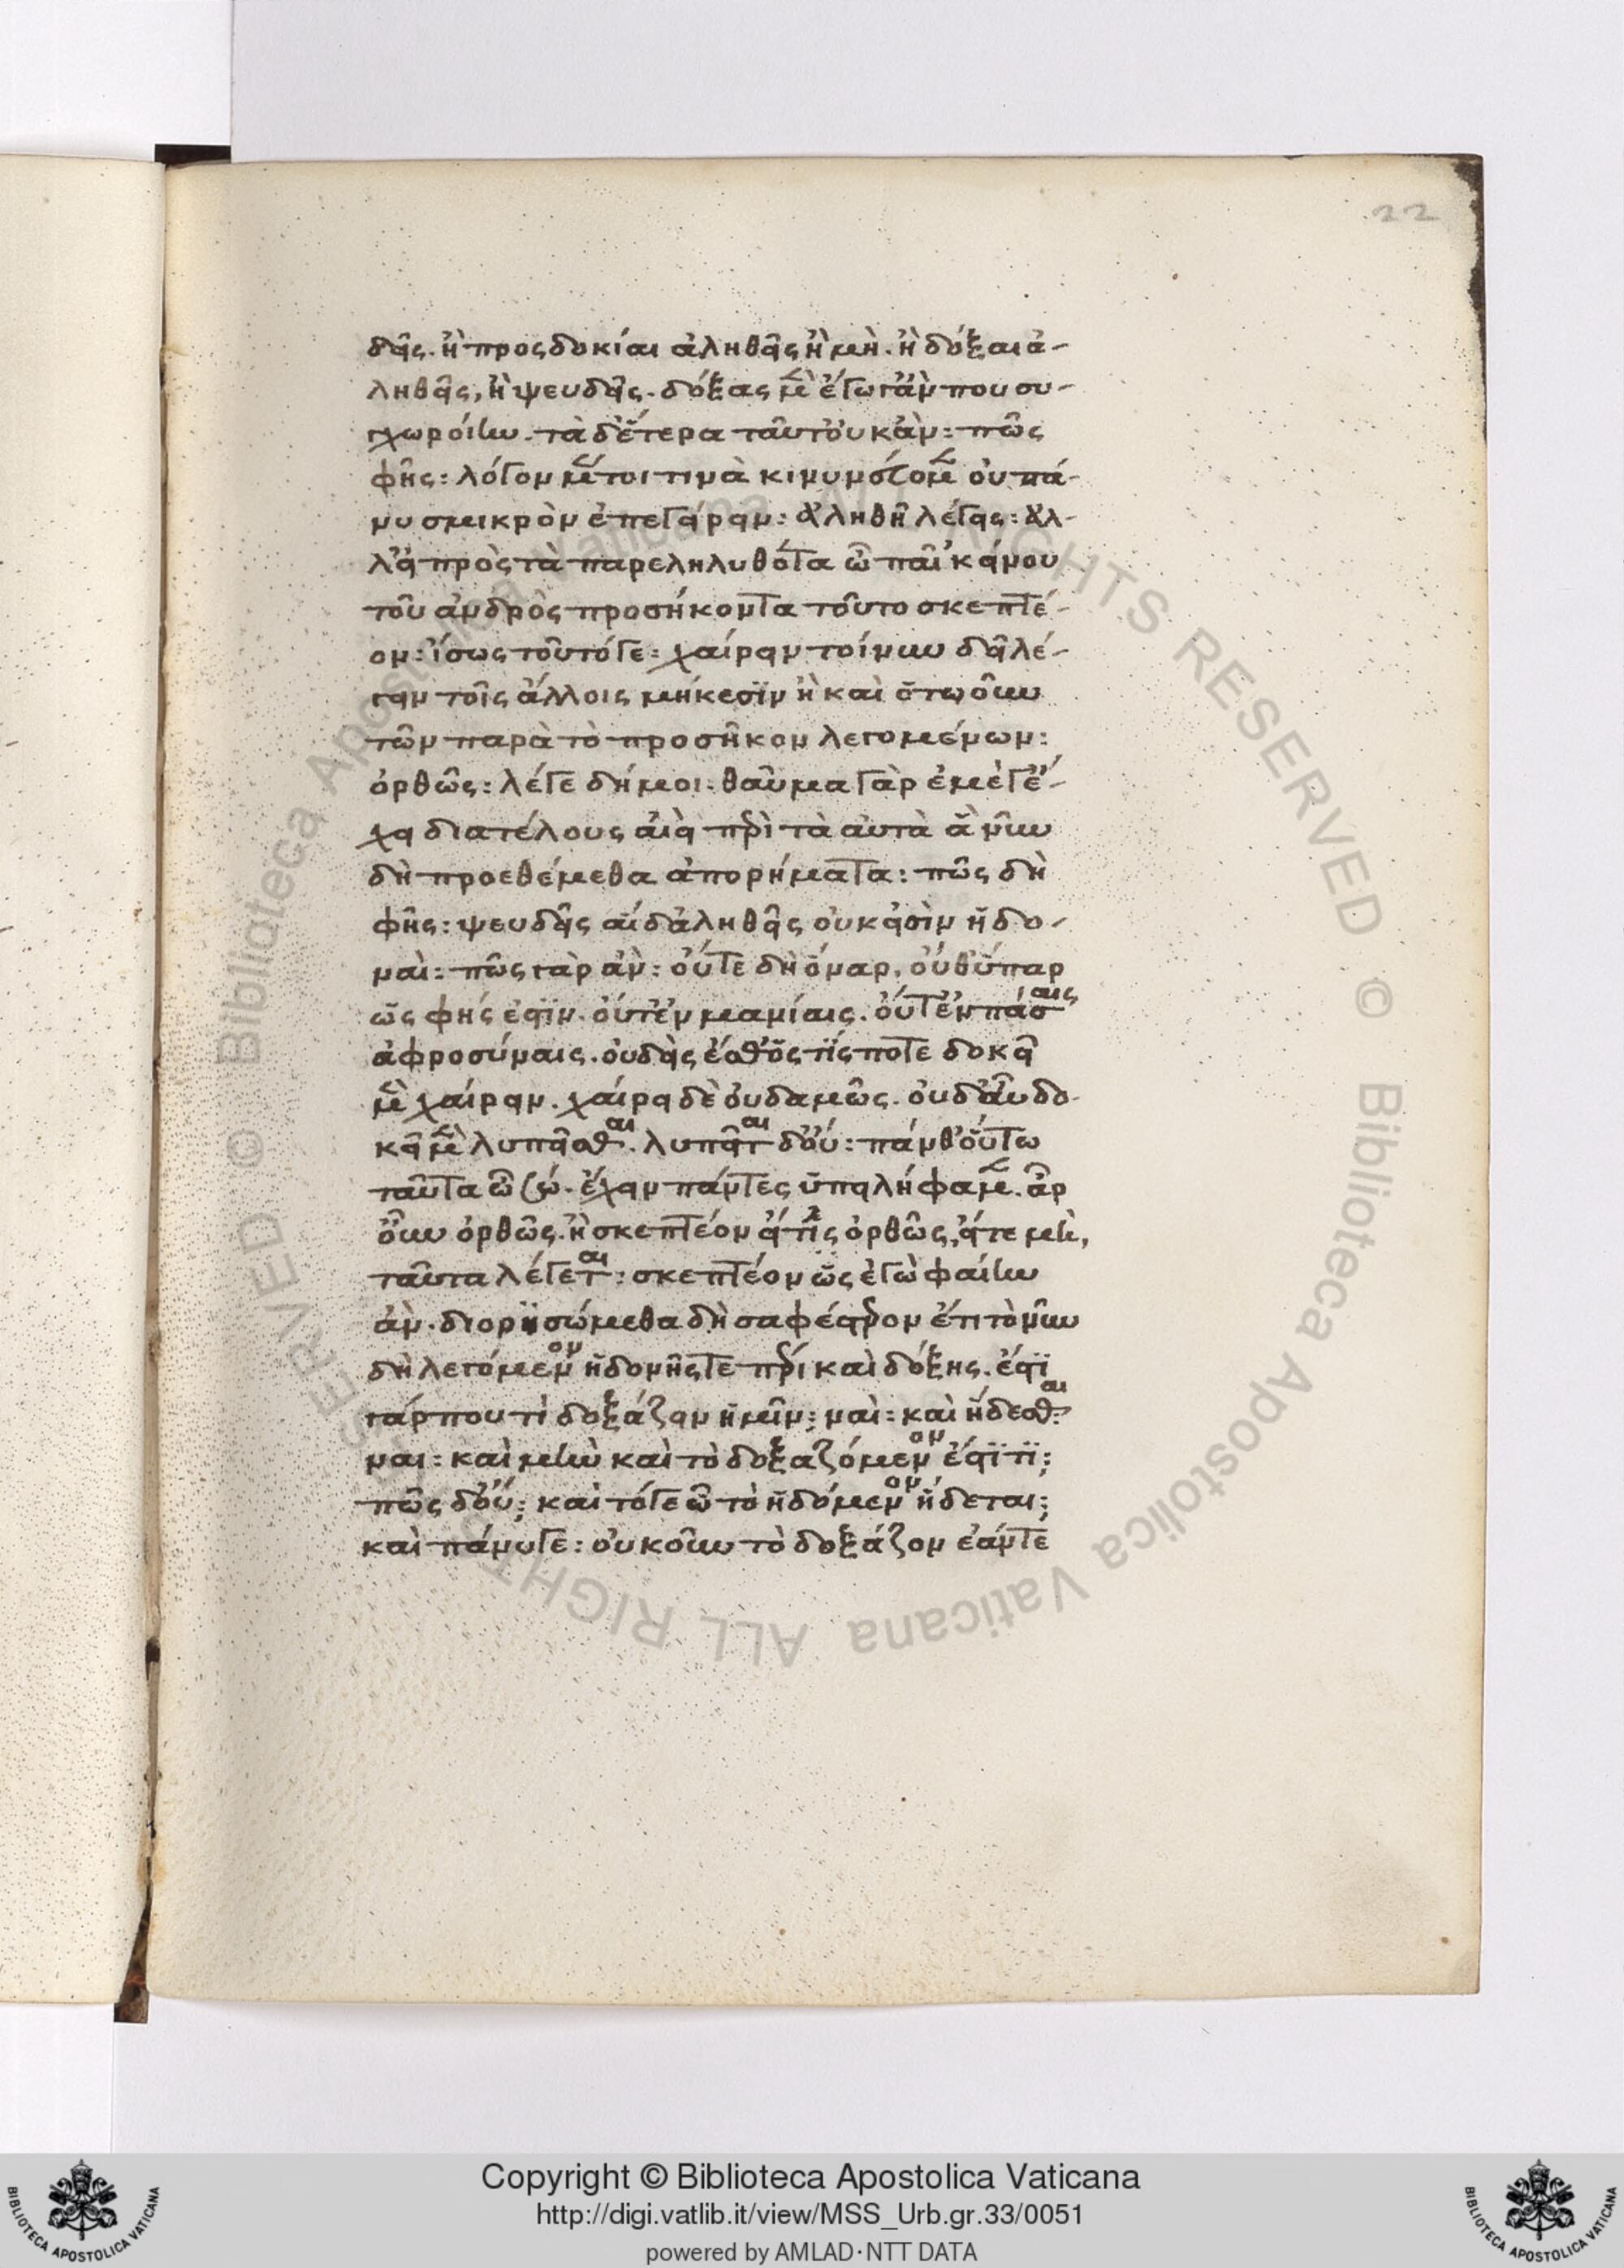 22
δεῖς. ἢ προσδοκίαι ἀληθεῖς ἢ μὴ. ἢ δόξαι ἀ-
ληθεῖς, ἢ ψευδεῖς. δόξας μὲν ἔγωγ' ἂν που συ-
γχωροίην. τὰ δ' ἕτερα ταῦτ' οὐκ ἂν: πῶς
φῇς: λόγον μέντοι τινὰ κινδυνεύομεν οὐ πά-
νυ σμικρὸν ἐπεγείρειν: ἀληθῆ λέγεις: ἀλ-
λ' εἰ πρὸς τὰ παρεληλυθότα ὦ παῖ 'κείνου
τοῦ ἀνδρὸς προσήκοντα τοῦτο σκεπτέ-
ον: ἴσως τοῦτό γε: χαίρειν τοίνυν δεῖ λέ-
γειν τοῖς ἄλλοις μήκεσϊν ἢ καὶ ὅτῳοῦν
τῶν παρὰ τὸ προσῆκον λεγομένων:
ὀρθῶς: λέγε δή μοι. θαῦμα γὰρ ἐμὲ γ' ἔ-
χει διατέλους ἀεὶ περὶ τὰ αὐτὰ ἃ νῦν
δὴ προεθέμεθα ἀπορήματα: πῶς δὴ
φῇς: ψευδεῖς αἵ δ' ἀληθεῖς οὐκ εἰσὶν ἡδο-
ναὶ: πῶς γὰρ ἂν: οὔτε δὴ ὄναρ, οὔθ' ὕπαρ
ὥς φῄς ἐστϊν. οὔτ' ἐν μανίαις. οὔτ' ἐν πάσαις
ἀφροσύναις. οὐδεὶς ἔσθ' ὅς τίς ποτε δοκεῖ
μὲν χαίρειν. χαίρει δὲ οὐδαμῶς. οὐδ' αὖ δο-
κεῖ μὲν λυπεῖσθαι. λυπεῖται δ' οὔ: πάνθ' οὕτω
ταῦτα ὦ σώ. ἔχειν πάντες ὑπειλήφαμεν. ἆρ
οὖν ὀρθῶς. ἢ σκεπτέον εἴτις ὀρθῶς, εἴτε μὴ,
ταῦτα λέγεται: σκεπτέον ὥς ἐγὼ φαίην
ἂν. διορϊσώμεθα δὴ σαφέστερον ἔτι τὸ νῦν
δὴ λεγόμενον ἡδονῆς τε περί καὶ δόξης. ἔστϊ
γάρ που τὶ δοξάζειν ἡμῖν; ναὶ: καὶ ἥδεσθαι:
ναι: καὶ μὴν καὶ τὸ δοξαζόμενον ἔστϊ τϊ;
πῶς δ' οὔ; καὶ τό γε ὧ τὸ ἡδόμενον ἥδεται;
καὶ πάνυ γε: οὐκοῦν τὸ δοξάζον ἐάντε
Copyright © Biblioteca Apostolica Vaticana
http://digi.vatlib.it/view/MSS_Urb.gr.33/0051
powered by AMLAD·NTT DATA